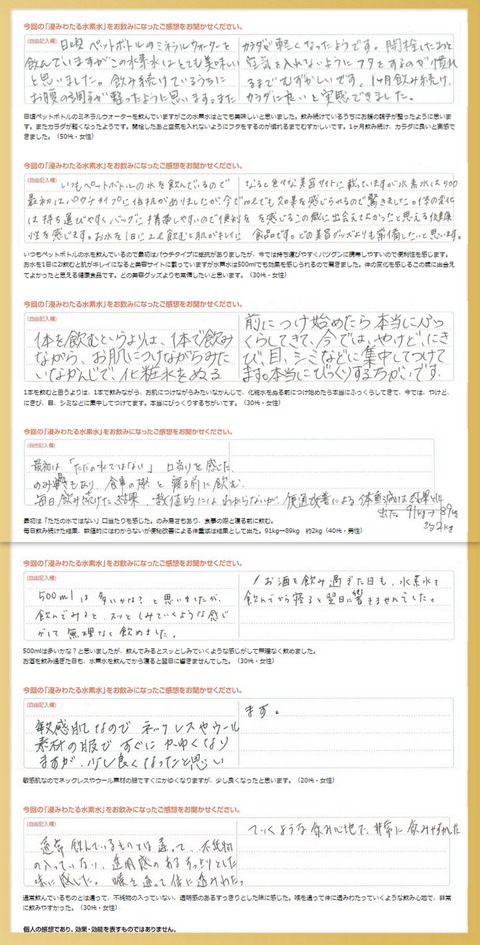 今回の「浸みわたる水素水」をお飲みになったご感想をお聞かせください。
(自由記入欄)
日頃ペットボトルのミネラルウォーターを
飲んでいますがこの水素水はとても美味しい
と思いました。飲み続けているうちに
お腹の調子が整ったように思います。また
カラダが軽くなったようです。開栓したあと
空気を入れないようにフタをするのが慣れ
るまでむずかしいです。1ヶ月飲み続け、
カラダに良いと実感できました。
日頃ペットボトルのミネラルウォーターを飲んでいますがこの水素水はとても美味しいと思いました。飲み続けているうちにお腹の調子が整ったように思いま
す。またカラダが軽くなったようです。開栓したあと空気を入れないようにフタをするのが慣れるまでむずかしいです。1ヶ月飲み続け、カラダに良いと実感で
きました。（50代・女性）
今回の「浸みわたる水素水」をお飲みになったご感想をお聞かせください。
(自由記入欄)
いつもペットボトルの水を飲んでいるので
最初はパウチタイプに抵抗がありましたが、今で
は持ち運びやすくバッグに携帯しやすいので便利
性を感じます。お水を1日に2L飲むと肌がキレイに
なると色々な美容サイトに載っていますが水素水は500
mlでも効果を感じられるので驚きました。体の変化
を感じるこの戯に出会えてよかったと思える健康
食品です。どの美容グッズよりも常備したいと思います。
いつもペットボトルの水を飲んでいるので最初はパウチタイプに抵抗がありましたが、今では持ち運びやすくバッグンに携帯しやすいので便利性を感じます。
お水を1日に2l飲むと肌がキレイになると美容サイトに載っていますが水素水は500mlでも効果を感じられるので驚きました。体の変化を感じるこの戯に出会え
てよかったと思える健康食品です。どの美容グッズよりも常備したいと思います。（30代・女性）
今回の「浸みわたる水素水」をお飲みになったご感想をお聞かせください。
(自由記入欄)
1本を飲むというよりは、1本で飲み
ながら、お肌につけながらみた
いなかんじで、化粧水をぬる
前につけ始めたら本当にふっ
くらしてきて、今では、やけど、にき
び、目、シミなどに集中してつけて
ます。本当にびっくりするちがいです。
1本を飲むと言うよりは、1本で飲みながら、お肌につけながらみたいなかんじで、化粧水をぬる前につけ始めたら本当にふっくらしてきて、今では、やけど、
にきび、目、シミなどに集中してつけてます。本当にびっくりするちがいです。（30代・女性）
今回の「浸みわたる水素水」をお飲みになったご感想をお聞かせください。
(自由記入欄)
最初は「ただの水ではない」口当りを感じた、
のみ易さもあり、食事の際と寝る前に飲む、
毎日飲み続けた結果、数値的にはわからないが、便通改善による体重減は結果とし
出た 91kg→89kg
約2kg
最初は「ただの水ではない」口当たりを感じた。のみ易さもあり、食事の際と寝る前に飲む。
毎日飲み続けた結果、数値的にはわからないが便通改善による体重減は結果として出た。91kg→89kg 約2kg（40代・男性）
今回の「浸みわたる水素水」をお飲みになったご感想をお聞かせください。
(自由記入欄)
500mlは多いかな？と思いましたが、
飲んでみると、スッとしみていくような感じ
がして無理なく飲めました。
お酒を飲み過ぎた日も、水素水を
飲んでから寝ると翌日に響きませんでした。
500mlは多いかな？と思いましたが、飲んでみるとスッとしみていくような感じがして無理なく飲めました。
お酒を飲み過ぎた日も、水素水を飲んでから寝ると翌日に響きませんでした。（30代・女性）
今回の「浸みわたる水素水」をお飲みになったご感想をお聞かせください。
(自由記入欄)
敏感肌なのでネックレスやウール
素材の服ですぐにかゆくなり
ますが、少し良くなったと思い
ます。
敏感肌なのでネックレスやウール素材の服ですぐにかゆくなりますが、少し良くなったと思います。（20代・女性）
今回の「浸みわたる水素水」をお飲みになったご感想をお聞かせください。
(自由記入欄)
通常飲んでいるものとは違って、不純物
の入っていない、透明感のあるすっきりとした
味に感じた。喉を通って体に透みわたっ
ていくような飲み心地で、非常に飲みやすかった
通常飲んでいるものとは違って、不純物の入っていない、透明感のあるすっきりとした味に感じた。喉を通って体に透みわたっていくような飲み心地で、非常
に飲みやすかった。（30代・女性）
個人の感想であり、効果・効能を表すものではありません。